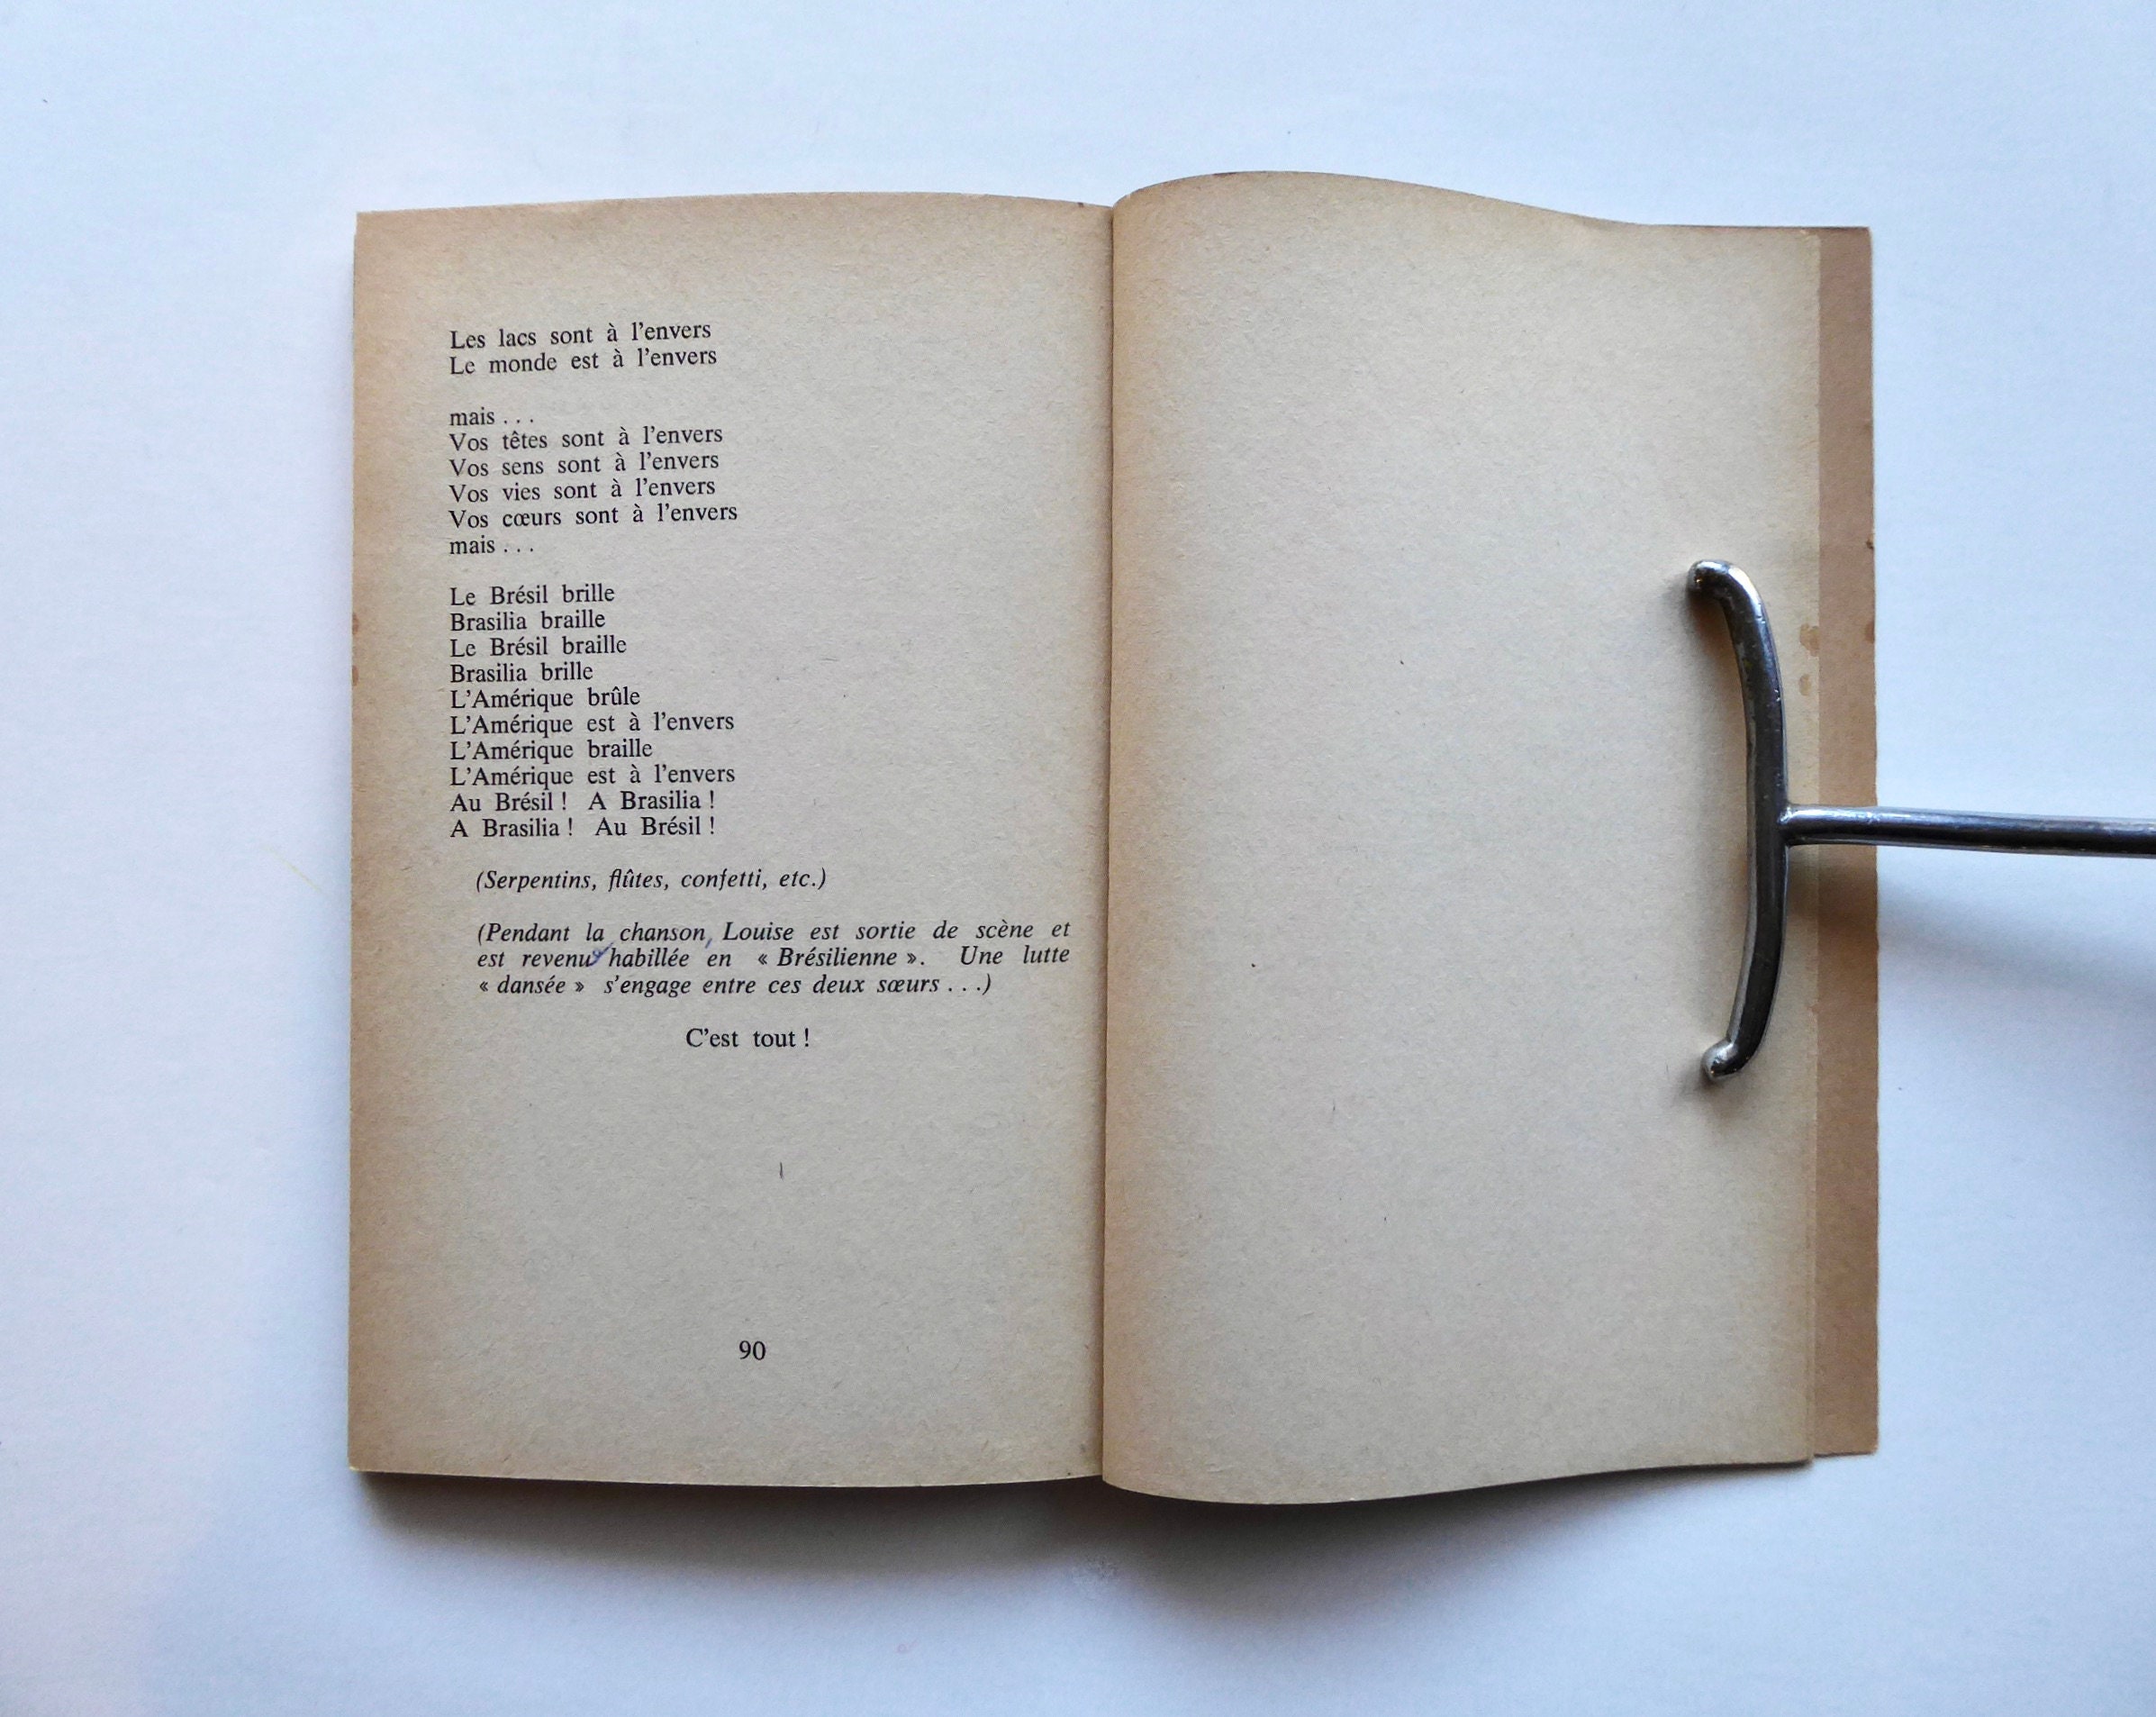 Les lacs sont à l'envers
Le monde est à l'envers
mais . . .
Vos têtes sont à l'envers
Vos sens sont à l'envers
Vos vies sont à l'envers
Vos cœurs sont à l'envers
mais . . .
Le Brésil brille
Brasilia braille
Le Brésil braille
Brasilia brille
L'Amérique brûle
L'Amérique est à l'envers
L'Amérique braille
L'Amérique est à l'envers
Au Brésil ! A Brasilia !
A Brasilia ! Au Brésil !
(Serpentins, flûtes, confetti, etc.)
(Pendant la chanson, Louise est sortie de scène et
est revenue habillée en « Brésilienne ». Une lutte
« dansée » s'engage entre ces deux sœurs . . .)
C'est tout !
90